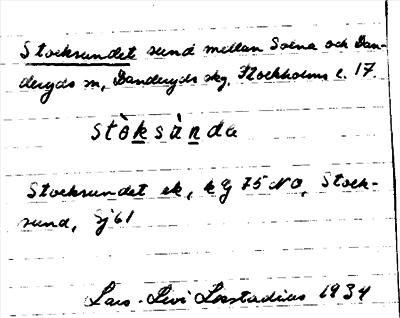 Stocksundet sund mellan Solna och Dan-
deryds sn, Danderyds skg. Stockholms l. 17
stòksùnda
Stocksundet ek, kg 75 NO, Stock-
sund, Sj 61
Lars-Levi Læstadius 1934